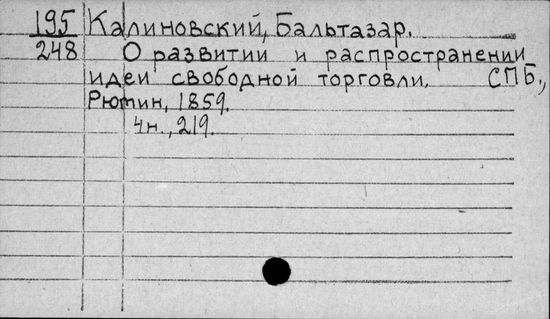 195 Калиновский, Бальтазар.
248 О развитии и распространении
идеи свободной торговли. СПБ.,
Рютин, 1859.
4н., 219.